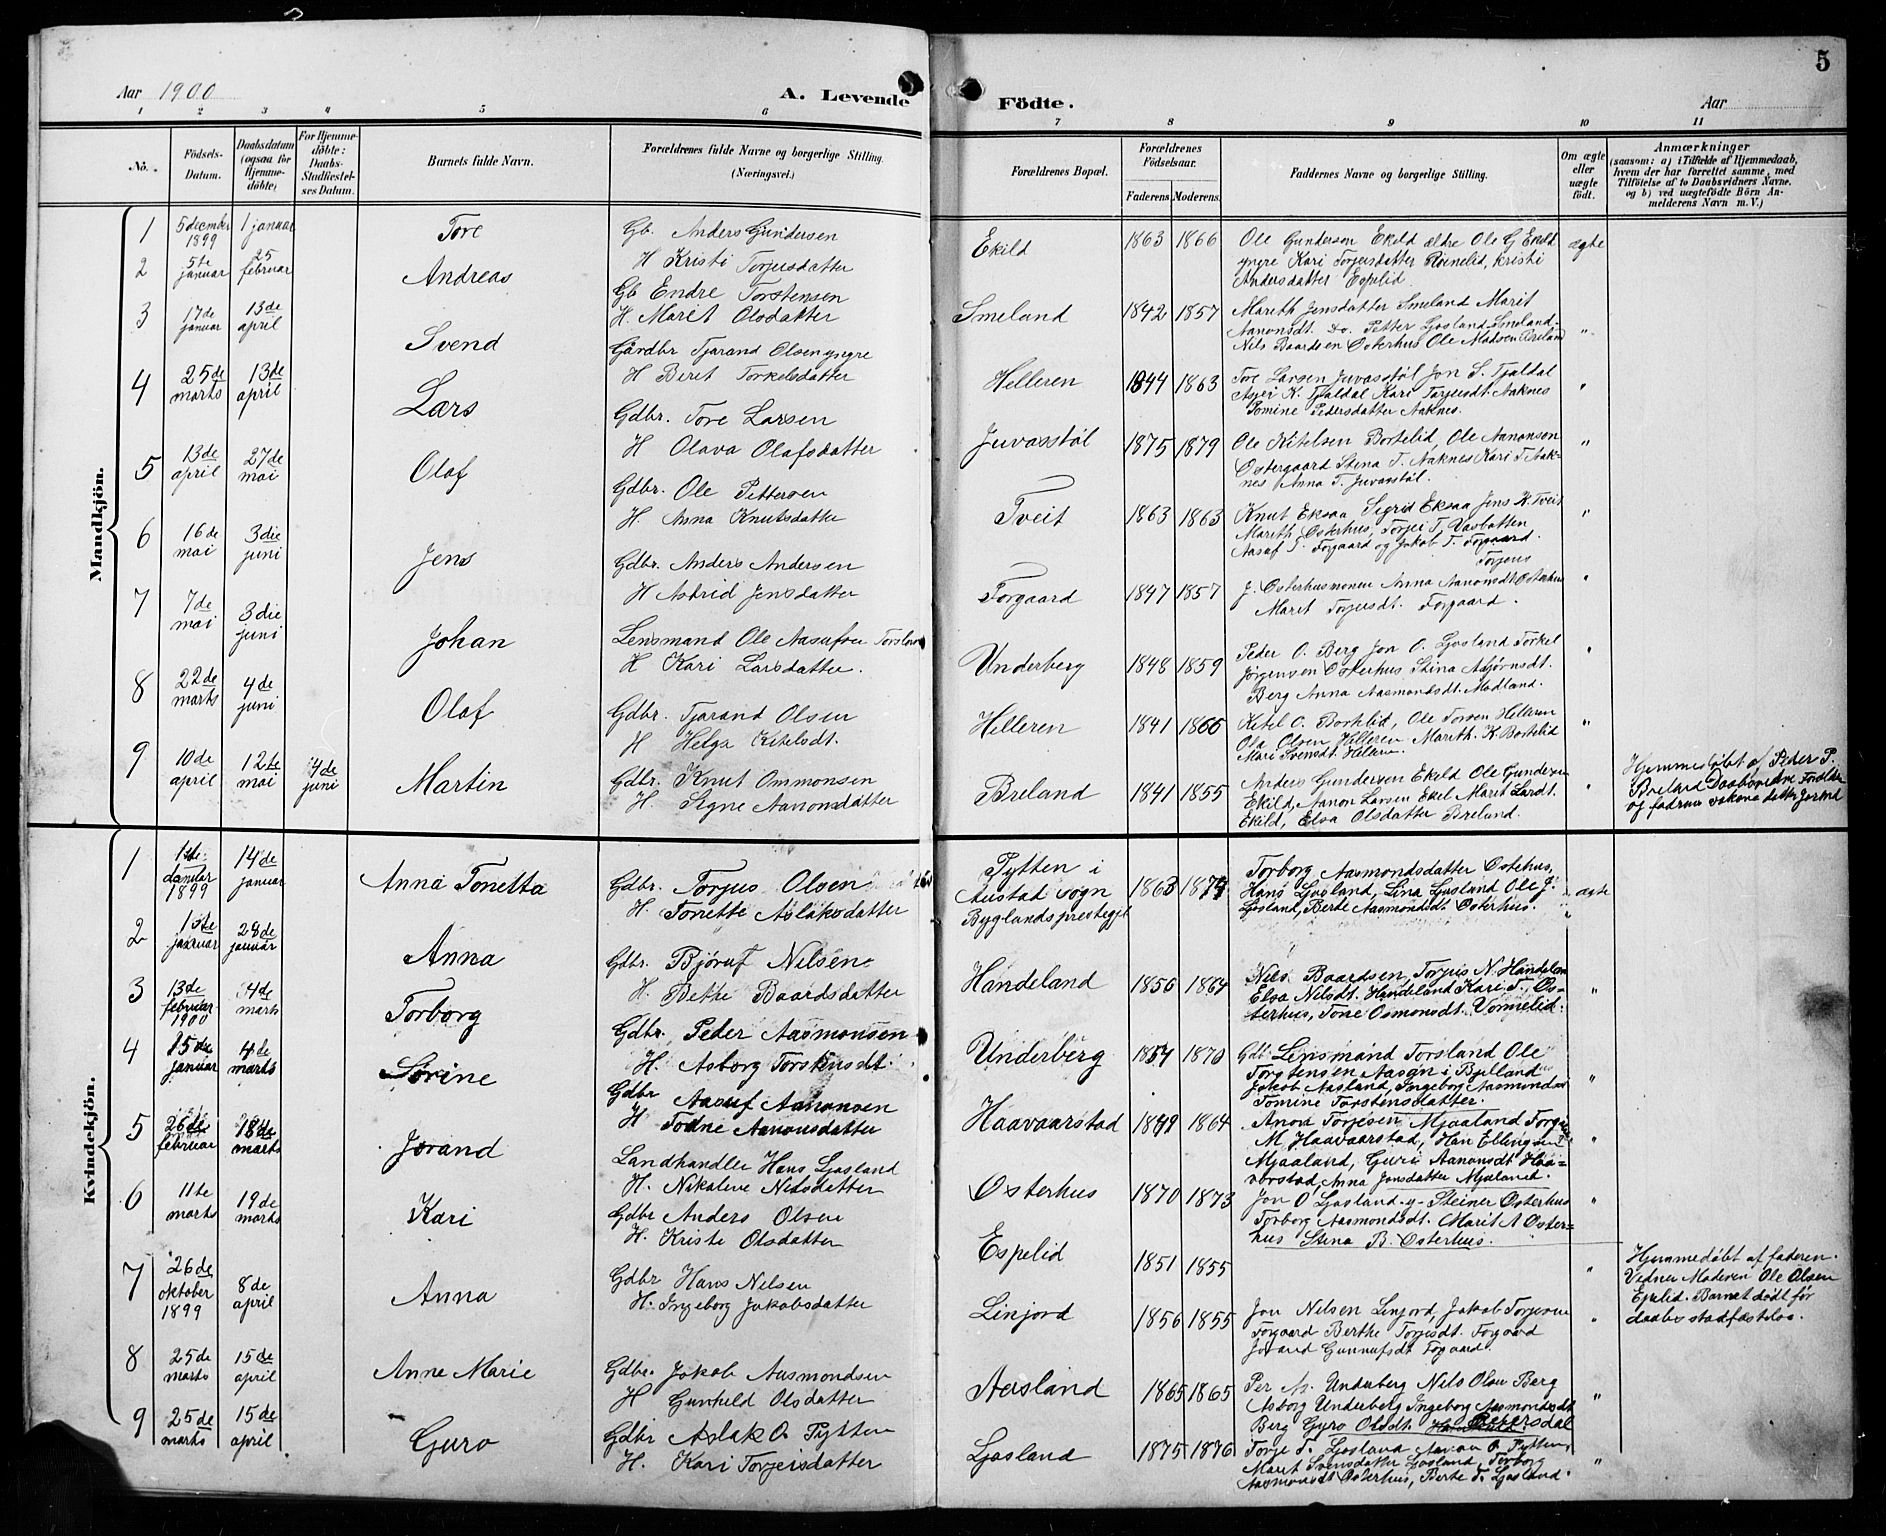 5
Aar 1900
A. Levende
Födte.
Aar
1 2 3 4 5 6 7 8 9 10 11
No.
Födsels-
Datum.
Daabsdatum
(ogsaa for
Hjemme-
döbte)
For Hjemme-
döbte:
Daabs-
Stadfestel-
ses Datum.
Barnets fulde Navn.
Forældrenes fulde Navne og borgerlige Stilling.
(Næringsvei.)
Forældrenes Bopæl.
Forældrenes
Födselsaar.
Faderens
Moderens.
Faddernes Navne og borgerlige Stilling.
Om ægte
eller
uægte
födt.
Anmærkninger
(saasom: a) i Tilfælde af Hjemmedaab,
hvem der har forrettet samme, med
Tilföielse af to Daabsvidners Navne.
og b) ved uægtefödte Börn An-
melderens Navn m. V.)
Mandkjön.
1 5 december 1899 1 januar Tore
Gb. Anders Gundersen
H Kristi Torjusdatter
Ekild 1863 1866
Ole Gunderson Ekild ældre Ole G Ekild
yngre Kari Torjusdatter Röinelid, Kristi
Andersdatter Espelid
ægte
2 5te januar 25 februar Andreas
Gb Endre Torstensen
H. Maret Olsdatter
Smeland 1842 1857
Mareth Jensdatter Smeland Marit
Aanonsdt. do. Petter Ljosland Smeland
Nils Baardsen Osterhus Ole Madsen Breland
"
3 17de januar 13de april Svend
Gårdbr Tjarand Olsen yngre
H Beret Torkelsdatter
Helleren 1844 1863
Tore Larsen Juvasstøl Jon S. Tjaldal
Asjer K. Tjaldal Kari Torjusdt. Aaknes
Tomine Pedersdatter Aaknes.
"
4 25de marts 13de april Lars
Gdbr. Tore Larsen
H Olava Olafsdatter
Juvasstøl 1875 1879
Ole Kitelsen Bortelid, Ole Aanonsen
Ostergaard Stina T. Aaknes Kari T. Aak-
nes Anna T. Juvasstøl.
"
5 13de april 27de mai Olaf
Gdbr. Ole Pettersen
H. Anna Knutsdatte
Tveit 1863 1863
Knut Eksaa Sigrid Eksaa Jens K. Tveit
Mareth Osterhus, Torjei T. Vasbatten
Aasuf T. Forgaard og Jakob T. Forgaard.
"
6 16de mai 3die juni Jens
Gdbr. Anders Andersen
H Astrid Jensdatter
Forgaard 1847 1857
Torjeus
J. Osterhusmonen Anna Aanonsdt Osterhus
Maret Torjusdt. Forgaard.
"
7 7de mai 3die juni Johan
Lensmand Ole Aasufsen Torsland
H Kari Larsdatter.
Underberg 1848 1859
Peder O. Berg Jon O. Ljosland Torkel
Jörgensen Osterhus Stina Asjörnsdt.
Berg Anna Aasmondsdt. Modland.
"
8 22de marts 4de juni Olaf
Gdbr. Tjarand Olsen
H Helga Kitelsdt.
Helleren 1841 1866
Kitel O. Bortelid, Ole Torsen Helleren
Ola Olsen Helleren Mareth K. Bortelid
Mari Svensdt. Helleren.
"
9 10de april 12te mai 4de juni Martin
Gdbr. Knut Ommonsen
H. Signe Aanonsdatter
Breland 1841 1855
Anders Gundersen Ekild Ole Gundersen
Ekild, Aanon Larsen Ekel Marit Larsdt.
Ekild, Elsa Olsdatter Breland.
"
Hjemmedøbt af Peder P.
Breland Daabsvidne
Kvindekjön.
1 1ste januar 1899 14de januar Anna Tonetta
Gdbr. Torjus Olsen
H. Tonette Aslaksdatter
Pytten i
Austad sogn
Byglands prestegjel
1863 1874
Torborg Aasmondsdatter Ostehus,
Hans Ljosland, Lina Ljosland Ole J.
Ljosland, Berte Aasmondsdt Osterhus.
ægte
2 13te januar 28de januar Anna
Gdbr. Bjørnuf Nilsen
H. Bethe Baardsdatter
Handeland 1856 1864
Nils Baardsen, Torjus N. Handeland
Elsa Nilsdt. Handeland Kari T. Os-
terhus, Tone Osmonsdt. Vormelid.
"
3 13de februar 1900 4de marts Torborg
Gdbr. Peder Aasmonsen
H. Asborg Torstensdt.
Underberg 1854 1870
Gdb. Lensmand Torsland Ole
Torstensen Aasen i Bjelland
Jakob Aasland, Ingeborg Aasmondsd
Tomine Torstensdatter.
"
4 15de januar 4de marts Sørine
Gdbr Aasuf Aanonsen
H Todne Aanonsdatter
Haavaarstad 1849 1864
Anon Torjesen Mjaaland Torgi
M. Haavaarstad, Han Ellingsen
Mjaaland, Guri Aanonsdt Haa-
vorstad, Anna Jonsdatter Mjaaland.
"
5 26de februar 18de marts Jorand
Landhandler Hans Ljosland
H. Nikoline Nilsdatter
Osterhus 1870 1873
Jon O Ljosland y. Steiner Osterhus
Torborg Aasmondsdt. Marit A Oster-
hus Stina B. Osterhus.
"
6 11te marts 19de marts Kari
Gdbr Anders Olsen
H. Kriste Olsdatter
Espelid 1851 1855
"
Hjemmedøbt af faderen.
Vidner Moderen Ole Olsen
Espelid. Barnet dødt før
daabsstadfæstelse.
7 26de oktober 1899 8de april Anna
Gdbr Hans Nilsen
H. Ingeborg Jakobsdatter
Linjord 1856 1855
Jon Nilsen Linjord, Jakob Torjesen
Forgaard Berthe Torjesdt. Forgaard
Jorand Gunnufsdt Forgaard.
"
8 25de marts 15de april Anne Marie
Gdbr. Jakob Aasmondsen
H Gunhild Olsdatter
Aasland 1865 1865
Per A. Underberg Nils Olsen Berg
Asborg Underberg Ingeborg Aasmondsdt
Berg Gyro Olsdt. Pedersdal
"
9 25de marts 15de april Guro
Gdbr Aslak O. Pytten
H. Kari Torjeisdatter
Ljosland 1875 1876
Torje T. Ljosland Aanon O. Pytten,
Maret Svensdatter Ljosland, Torborg
Aasmonsdt Osterhus, Berte T. Ljosland.
"